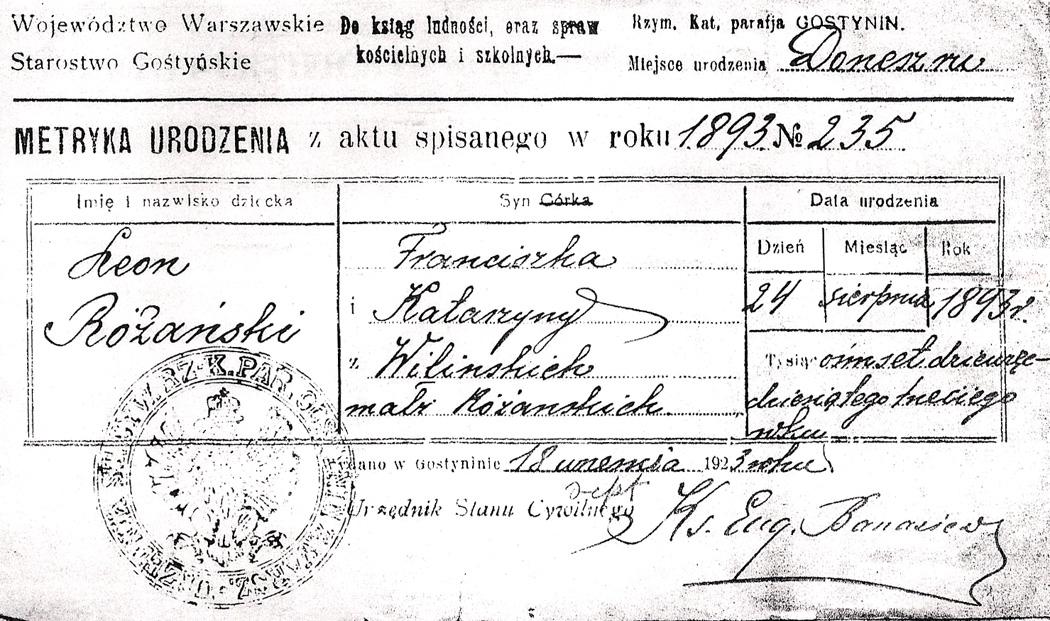 Województwo Warszawskie
Starostwo Gostyńskie
Do ksiąg ludności, oraz spraw
kościelnych i szkolnych.—
Rzym. Kat, parafja GOSTYNIN.
Miejsce urodzenia
METRYKA URODZENIA z aktu spisanego w roku 1893 № 235
Imię i nazwisko dziecka
Syn Córka
Data urodzenia
Dzień Miesiąc Rok
Leon
Różański
Franciszka
i Katarzyny
z Wilinskich
małż Różanskich.
24 sierpnia 1893 r.
Tysiąc ośmset dziewięć-
dziesiątego trzeciego
roku
Wydano w Gostyninie 18 1923 roku
Urzędnik Stanu Cywilnego
Ks. Eug.